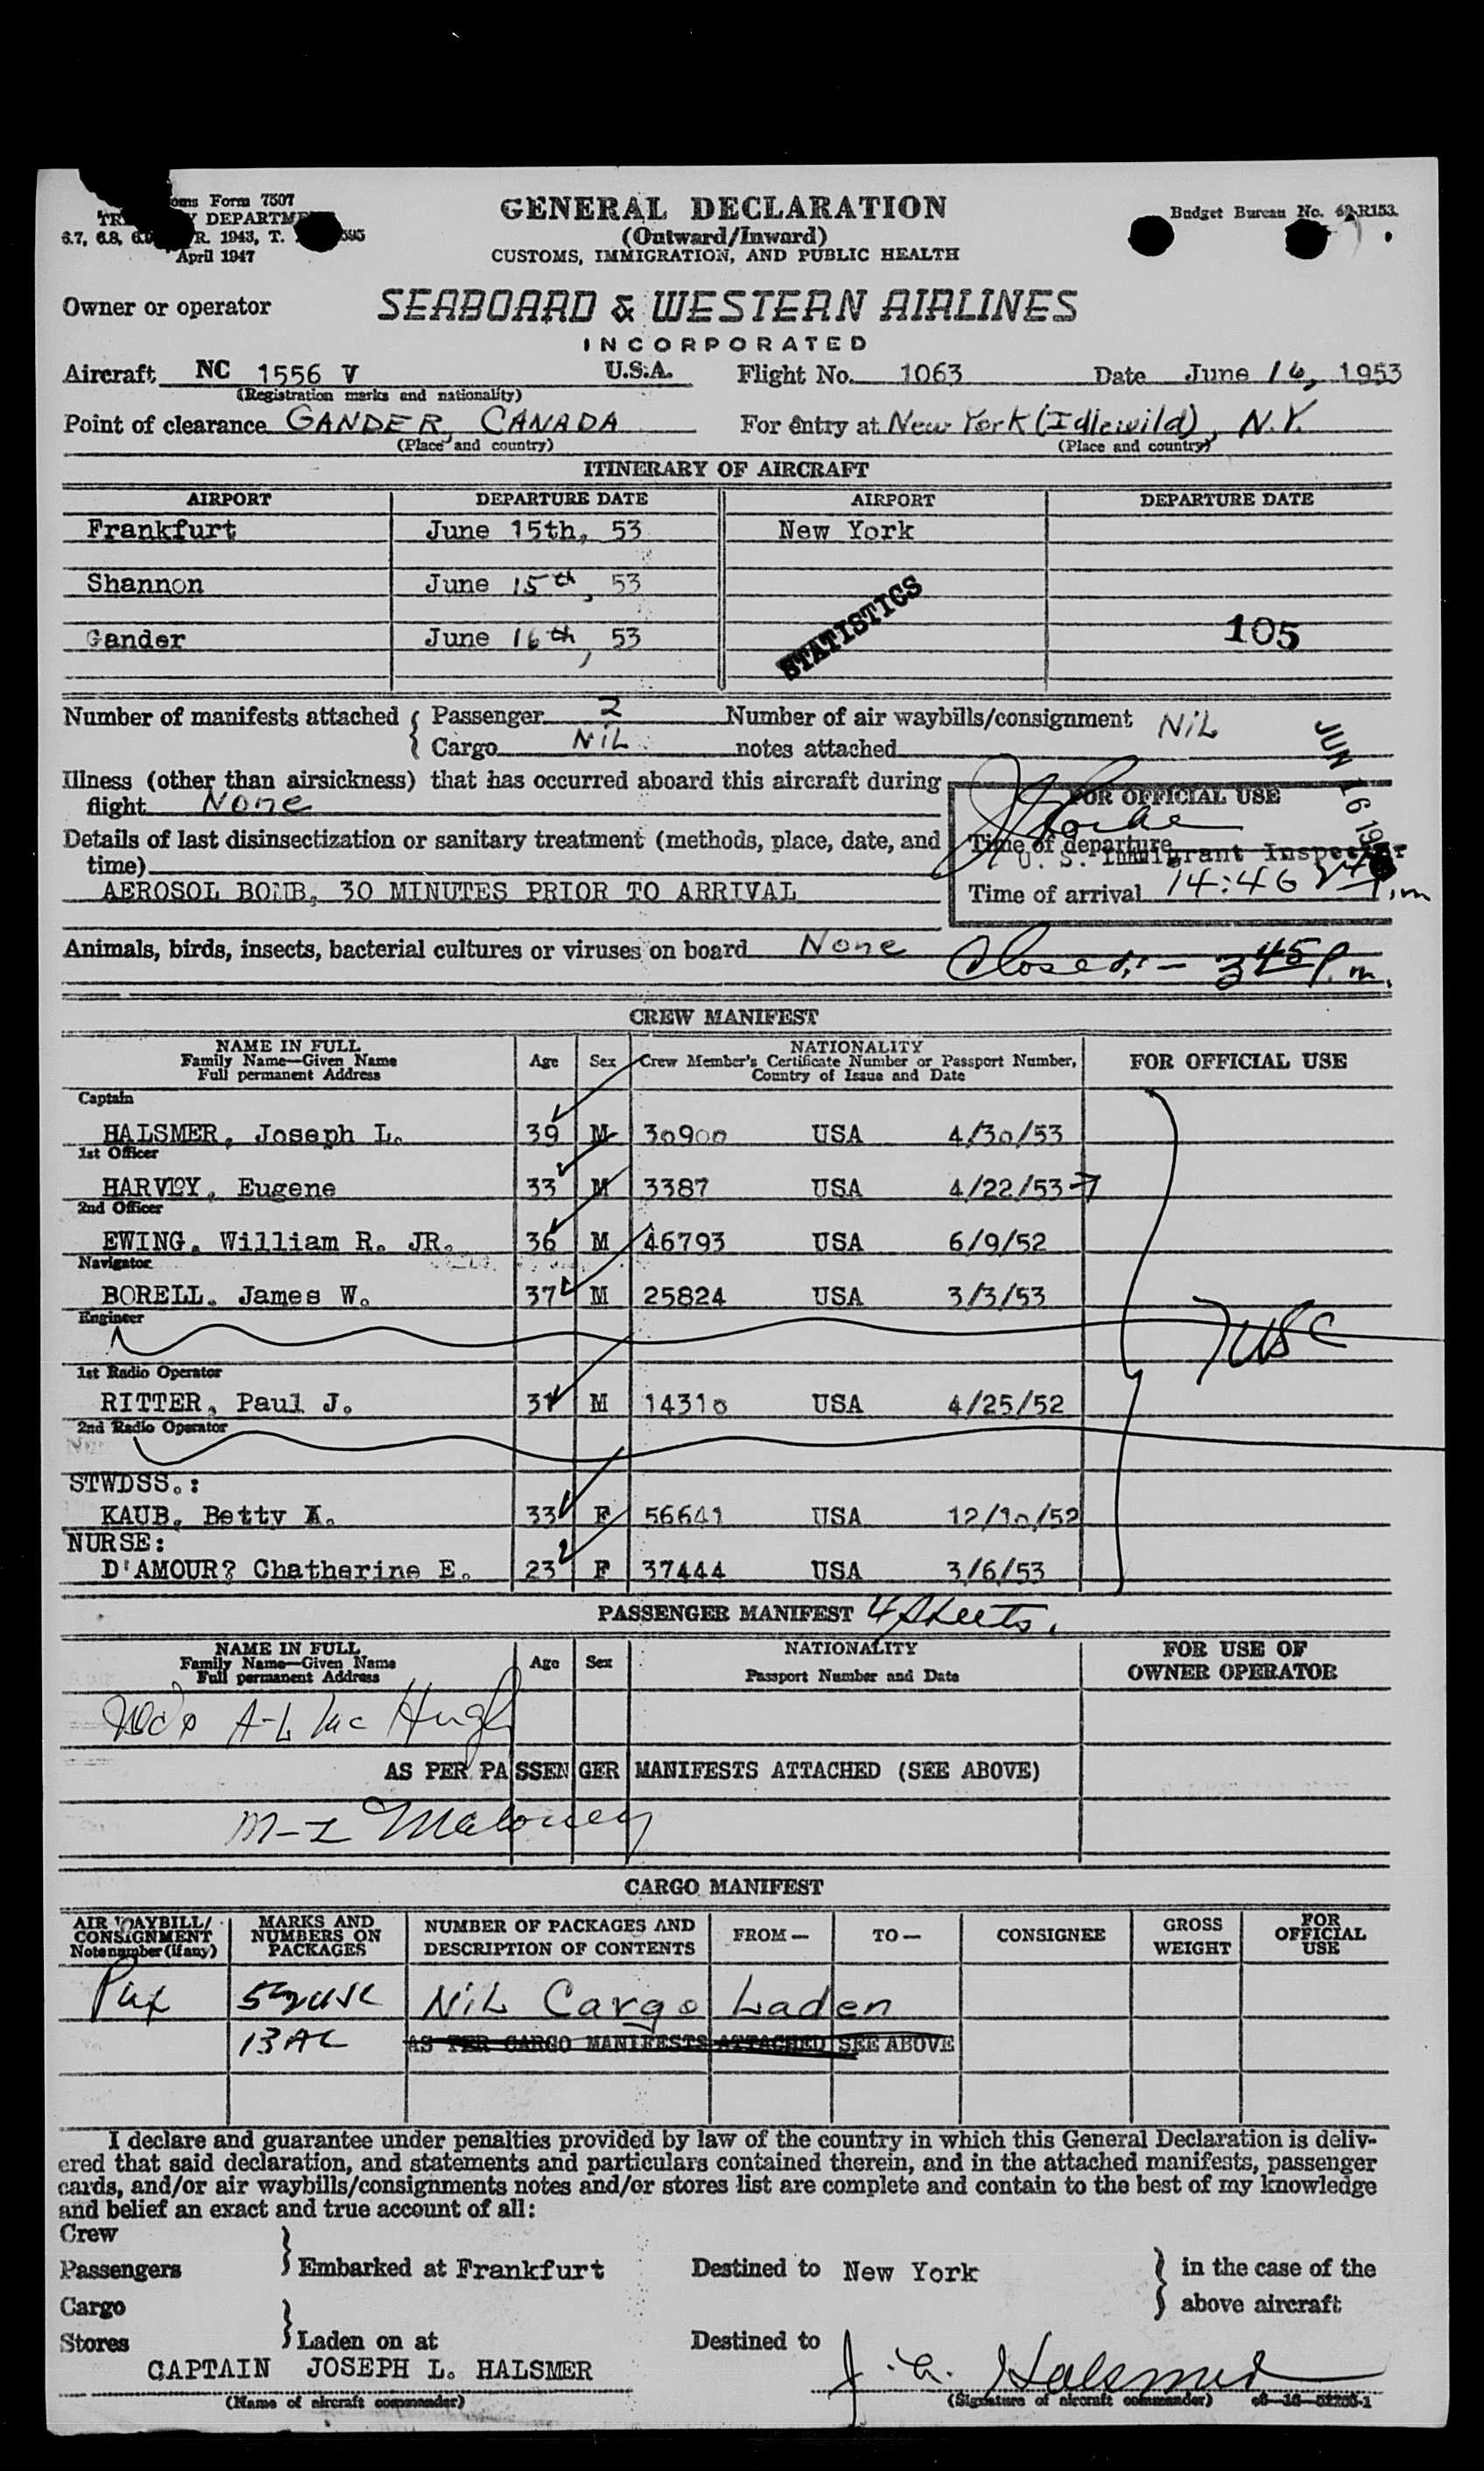 oms Form 7507
DEPARTM
6.7, 6.8, R. 1943, T.
April 1947
GENERAL DECLARATION
(Outward/Inward)
CUSTOMS, IMMIGRATION, AND PUBLIC HEALTH
Budget Bureau No. R153.
Owner or operator SEABOARD & WESTERN AIRLINES
INCORPORATED
Aircraft NC 1556 V U.S.A. Flight No. 1063 Date June 16, 1953
(Registration marks and nationality)
Point of clearance GANDER, CANADA For entry at New York (Idlewild), N.Y.
(Place and country) (Place and country)
ITINERARY OF AIRCRAFT
AIRPORT DEPARTURE DATE AIRPORT DEPARTURE DATE
Frankfurt June 15th, 53 New York
Shannon June 15th, 53
STATISTICS
Gander June 16th, 53 105
Number of manifests attached { Passenger 2 Number of air waybills/consignment Nil
Cargo Nil notes attached
JUN 16
Illness (other than airsickness) that has occurred aboard this aircraft during
flight None
FOR OFFICIAL USE
Details of last disinsectization or sanitary treatment (methods, place, date, and
time)
Time of departure
U. S. Immigrant Inspector
AEROSOL BOMB, 30 MINUTES PRIOR TO ARRIVAL
Time of arrival 14:46
Animals, birds, insects, bacterial cultures or viruses on board None
Closed:- 3 45 P.m.
CREW MANIFEST
NAME IN FULL
Family Name—Given Name
Full permanent Address
Age Sex
NATIONALITY
Crew Member's Certificate Number or Passport Number,
Country of Issue and Date
FOR OFFICIAL USE
Captain
HALSMER, Joseph L. 39 M 30900 USA 4/30/53
1st Officer
HARVEY, Eugene 33 M 3387 USA 4/22/53
2nd Officer
EWING, William R. JR. 36 M 46793 USA 6/9/52
Navigator
BORELL. James W. 37 M 25824 USA 3/3/53
Engineer
7 USC
1st Radio Operator
RITTER, Paul J. 31 M 14310 USA 4/25/52
2nd Radio Operator
STWDSS.:
KAUB, Betty A. 33 F 56641 USA 12/10/52
NURSE:
D'AMOUR? Chatherine E. 23 F 37444 USA 3/6/53
PASSENGER MANIFEST 4 Sheets.
NAME IN FULL
Family Name—Given Name
Full permanent Address
Age Sex
NATIONALITY
Passport Number and Date
FOR USE OF
OWNER OPERATOR
A-L McHugh
AS PER PASSENGER MANIFESTS ATTACHED (SEE ABOVE)
M-L Maloney
CARGO MANIFEST
AIR WAYBILL/
CONSIGNMENT
Note number (if any)
MARKS AND
NUMBERS ON
PACKAGES
NUMBER OF PACKAGES AND
DESCRIPTION OF CONTENTS
FROM— TO— CONSIGNEE
GROSS
WEIGHT
FOR
OFFICIAL
USE
Pax 52 USC Nil Cargo Laden
13 AL AS PER CARGO MANIFESTS ATTACHED SEE ABOVE
I declare and guarantee under penalties provided by law of the country in which this General Declaration is deliv-
ered that said declaration, and statements and particulars contained therein, and in the attached manifests, passenger
cards, and/or air waybills/consignments notes and/or stores list are complete and contain to the best of my knowledge
and belief an exact and true account of all:
Crew
Passengers } Embarked at Frankfurt Destined to New York } in the case of the
Cargo above aircraft
Stores } Laden on at Destined to
CAPTAIN JOSEPH L. HALSMER J. L. Halsmer
(Name of aircraft commander) (Signature of aircraft commander)